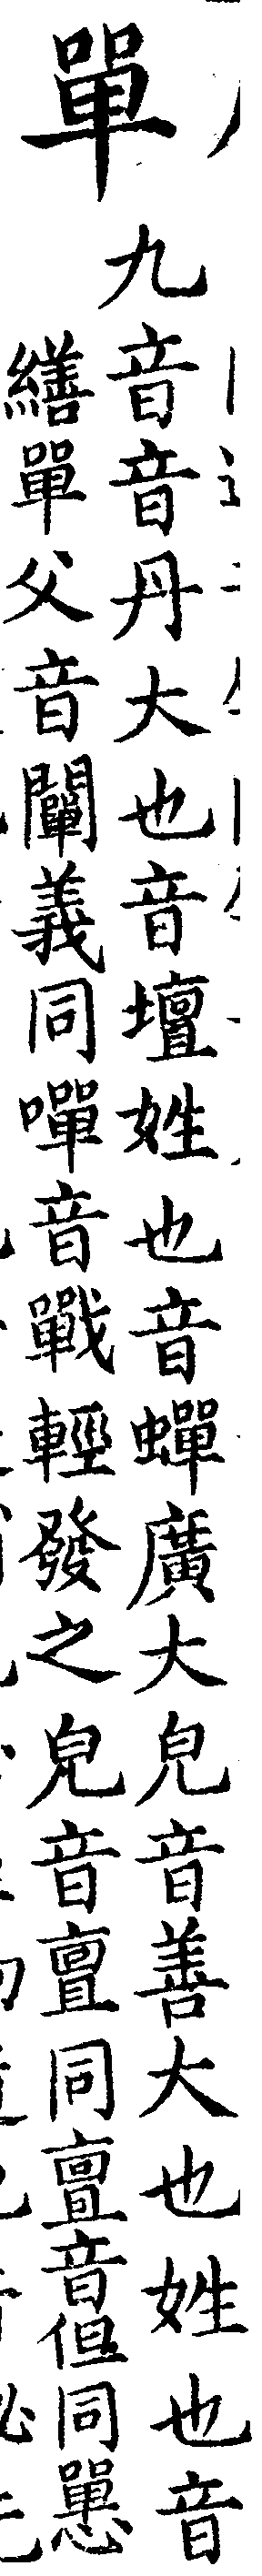 單
九音音丹大也音壇姓也音蟬廣大皃音善大也姓也音
繕單父音闡義同嘽音戰輕發之皃音亶同亶音但同㦨